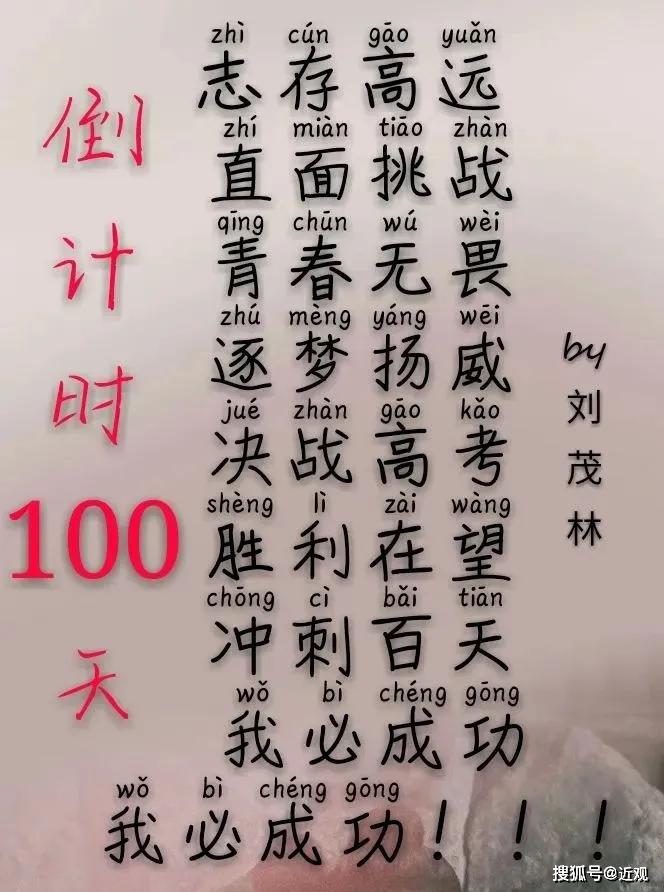 倒计时100天
zhì cún gāo yuǎn
志存高远
zhí miàn tiāo zhàn
直面挑战
qīng chūn wú wèi
青春无畏
zhú mèng yáng wēi
逐梦扬威
jué zhàn gāo kǎo
决战高考
shèng lì zài wàng
胜利在望
chōng cì bǎi tiān
冲刺百天
wǒ bì chéng gōng
我必成功
wǒ bì chéng gōng
我必成功！！！
by刘茂林
搜狐号@近观